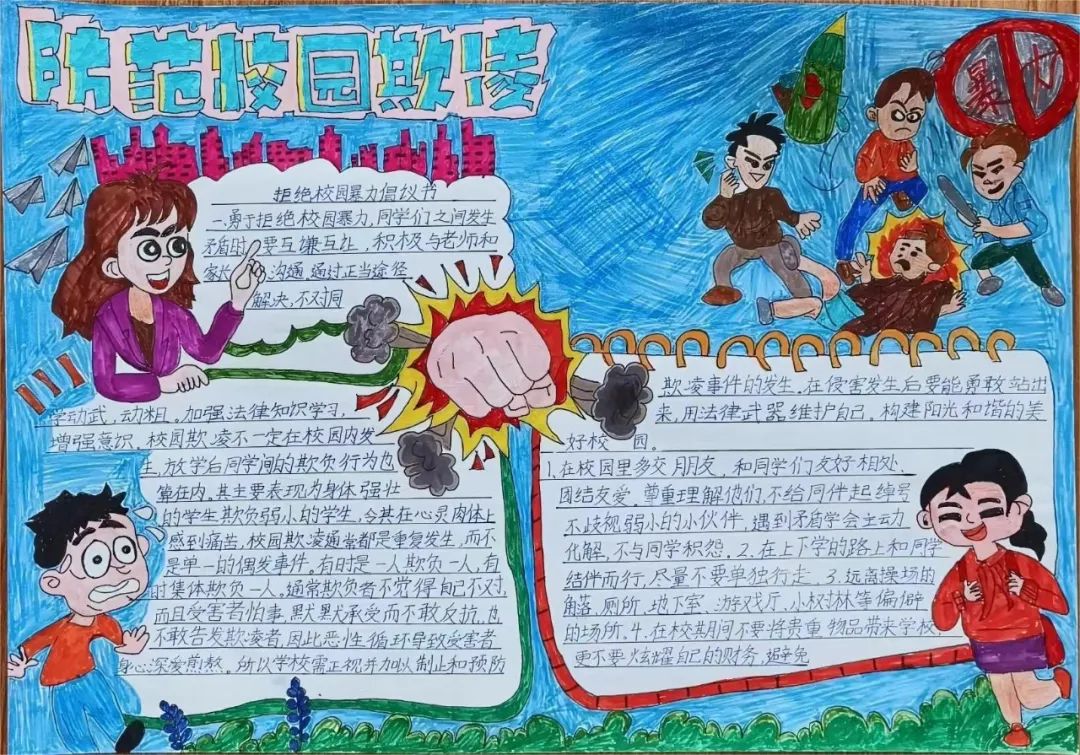 防范校园欺凌
暴力
拒绝校园暴力倡议书
一.勇于拒绝校园暴力,同学们之间发生
矛盾时,要互嫌互让,积极与老师和
家长 沟通,通过正当途径
解决,不对同
学动武,动粗。加强法律知识学习,
增强意识,校园欺凌不一定在校园内发
生,放学后同学间的欺负行为也
算在内。其主要表现为身体强壮
的学生欺负弱小的学生,令其在心灵肉体上
感到痛苦,校园欺凌通常都是重复发生,而不
是单一的偶发事件。有时是一人欺负一人,有
时集体欺负一人。通常欺负者不觉得自己不对,
而且受害者怕事,默默承受而不敢反抗,也
不敢告发欺凌者,因此恶性循环导致受害者
身心深受煎熬。所以学校需正视并加以制止和预防
欺凌事件的发生.在侵害发生后要能勇敢站出
来,用法律武器维护自己。构建阳光和谐的美
好校园。
1.在校园里多交朋友,和同学们友好相处、
团结友爱。尊重理解他们,不给同伴起绰号
不歧视弱小的小伙伴,遇到矛盾学会主动
化解,不与同学积怨。2.在上下学的路上和同学
结伴而行,尽量不要单独行走。3.远离操场的
角落,厕所、地下室、游戏厅、小树林等偏僻
的场所.4.在校期间不要将贵重物品带来学校,
更不要炫耀自己的财务,避免